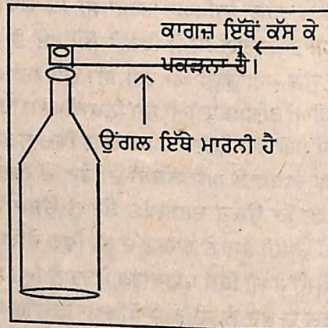 ਕਾਗਜ਼ ਇੱਥੋਂ ਕੱਸ ਕੇ
ਪਕੜਨਾ ਹੈ।
ਉਂਗਲ ਇੱਥੇ ਮਾਰਨੀ ਹੈ